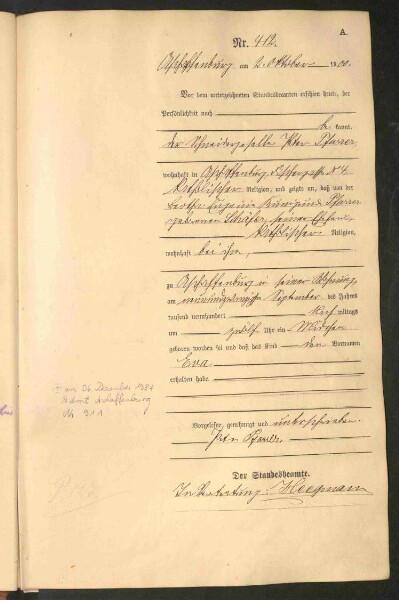 A.
Nr. 412.
Aschaffenburg am 2. Oktober 1900.
Vor dem unterzeichneten Standesbeamten erschien heute, der
Persönlichkeit nach
be kannt,
der Schneidergeselle Peter Pfarrer,
wohnhaft in Aschaffenburg,
katholischer Religion, und zeigte an, daß von der
Eugenie Kunigunde Pfarrer
geborenen Schäfer, seiner Ehefrau,
katholischer Religion,
wohnhaft bei ihm,
zu Aschaffenburg in seiner Wohnung,
am neunundzwanzigsten September des Jahres
tausend neunhundert mittags
um zwölf Uhr ein Mädchen
geboren worden sei und daß das Kind den Vornamen
Eva
erhalten habe.
Vorgelesen, genehmigt und unterschrieben.
Peter Pfarrer.
Der Standesbeamte.
In Vertretung:
am 26. Dezember 1984
Aschaffenburg
Nr 911